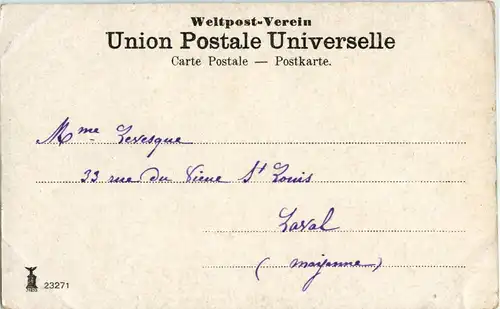 Weltpost-Verein
Union Postale Universelle
Carte Postale — Postkarte.
Mme Levesque
33 rue du Vieux St Louis
Laval
(Mayenne)
23271